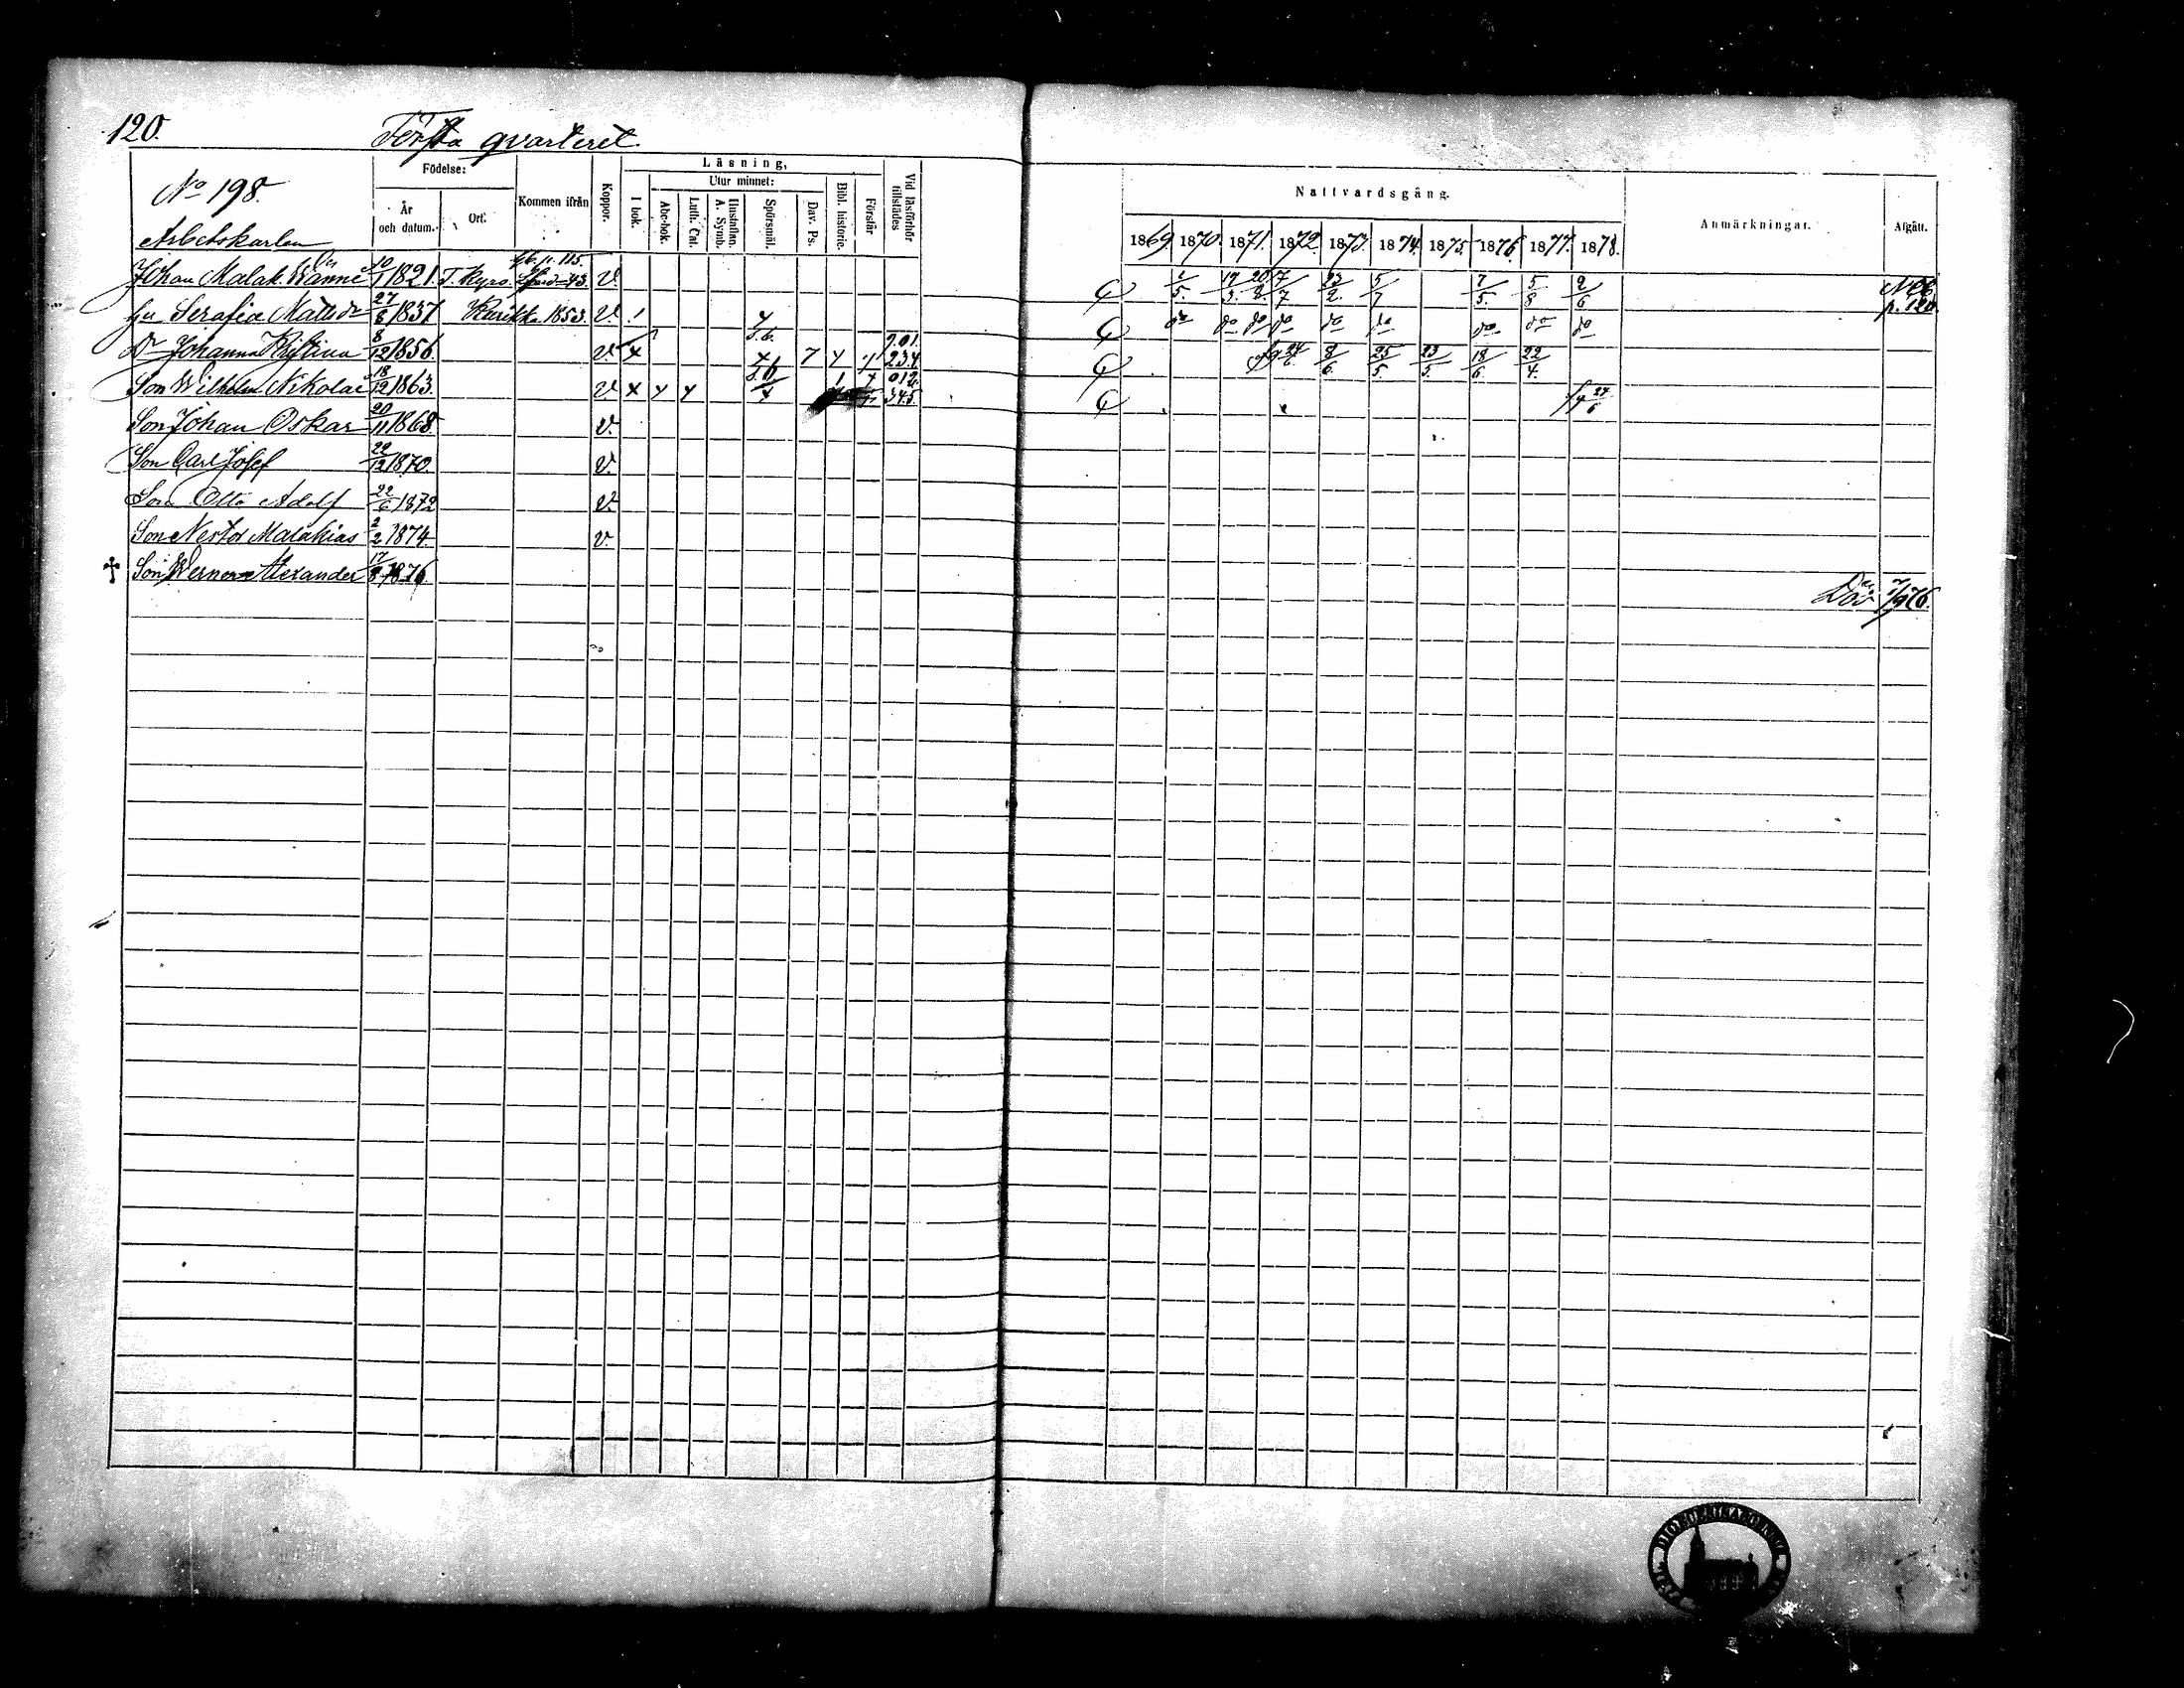 120.
Första qvarteret
No 198.
Arbetskarlen
Födelse:
År och datum.
Ort:
Kommen ifrån
Koppor.
Läsning,
I bok.
Utur minnet:
Abc-bok.
Luth. Cat.
Hustaflan. A. Symb.
Spörsmål.
Dav. Ps.
Bibl. historie.
Förstår
Vid läsförhör tillstädes
Nattvardsgång.
1869 1870. 1871. 1872. 1873. 1874. 1875. 1876. 1877. 1878.
Anmärkningar.
Afgått.
Johan Malak. Wanne 10/1 1821. T. Kyro. 43. v. 5. 17/3. 20/8. 7/7 23/2. 5/7 7/5. 5/8 2/6 p. 120.
hu Serafia Matsdr 27/8 1837 Kurikka 1853. v. 1 do do do do do do do do do
Dr Johanna Kristina 8/12 1856. v. x 7 y 7.01. 234 8/6. 25/5. 23/5. 18/6. 22/4.
Son Wilhelm Nikolai 18/12 1863. v x y y 012. 345. 27/6
Son Johan Oskar 20/11 1868. v.
Son Carl Josef 22/12 1870. v.
Son Otto Adolf 22/6 1872 v.
Son Nestor Malakias 2/2 1874. v.
† Son Werner Alexander 17/8 1876 Död 76.